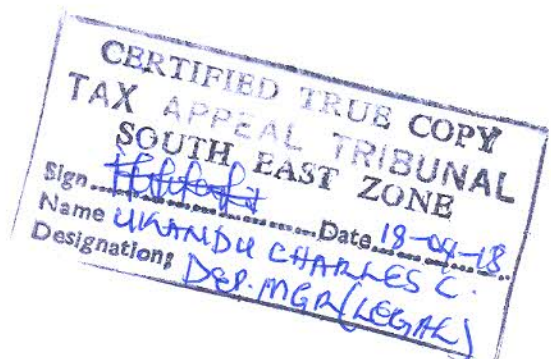 CERTIFIED TRUE COPY
TAX APPEAL TRIBUNAL
SOUTH EAST ZONE
Sign.................... Date 18-04-18
Name UKANDU CHARLES C.
Designation: DEP. MGR (LEGAL)